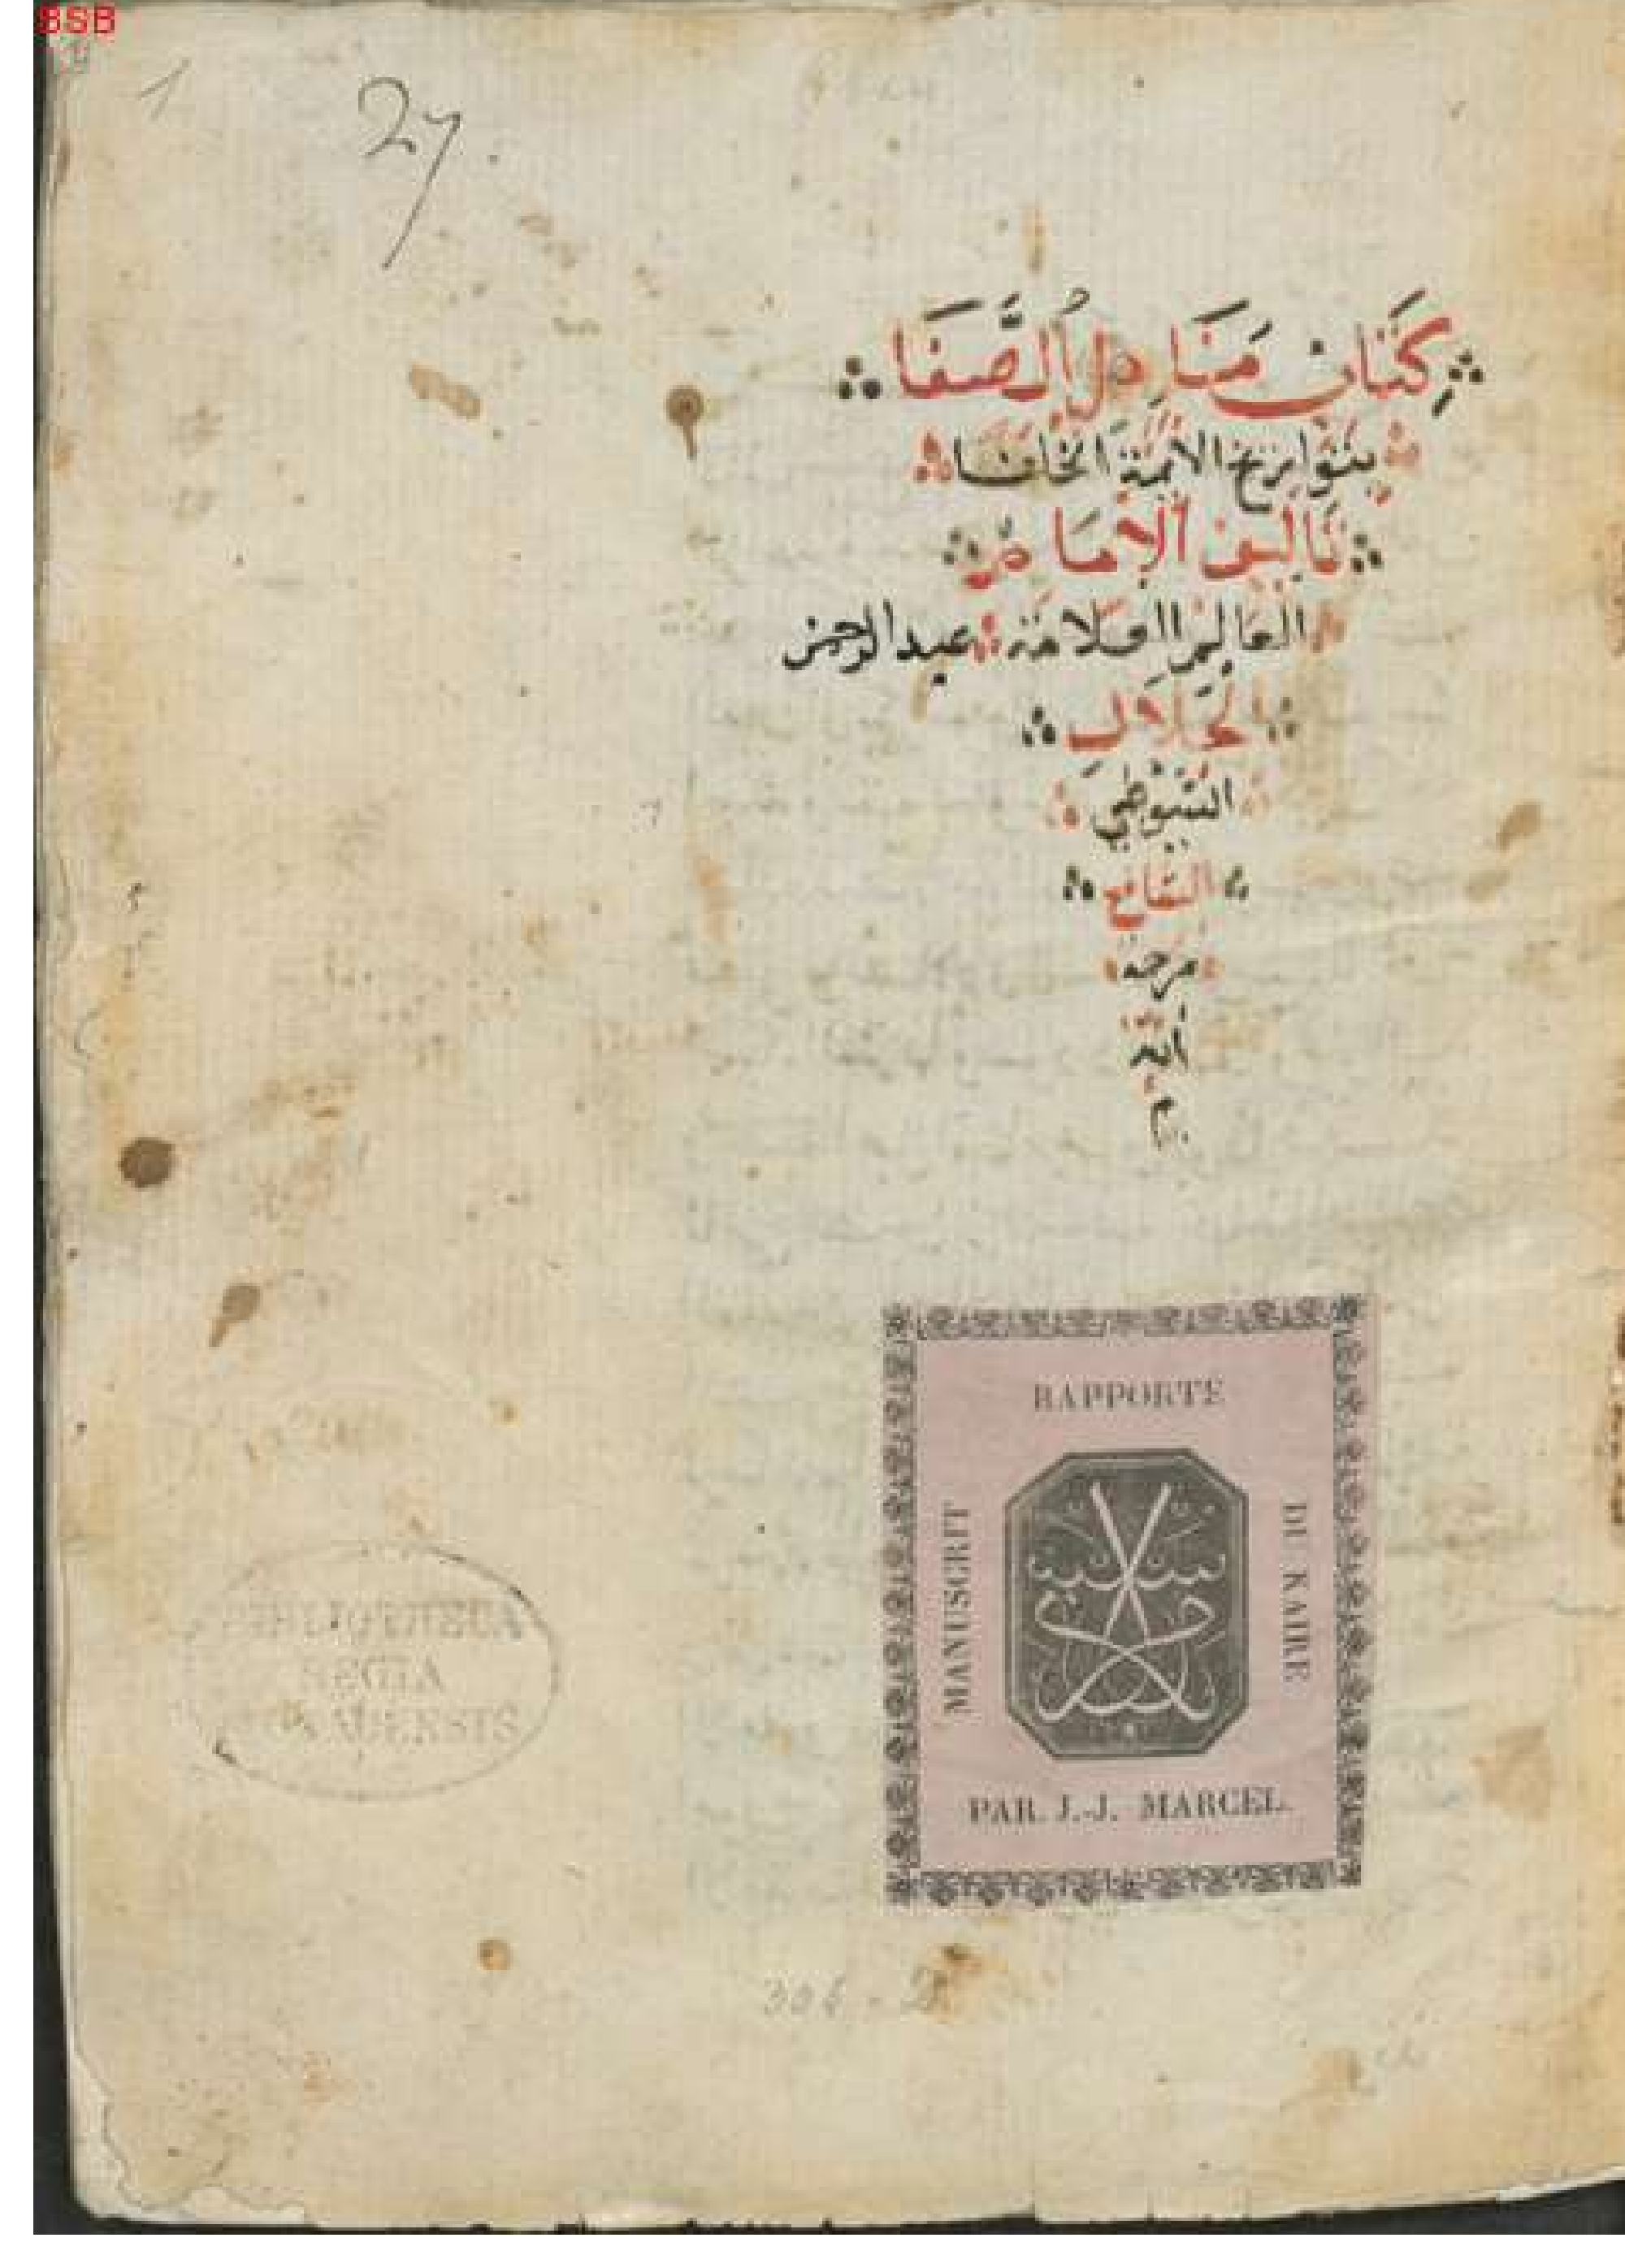 BSB
1
27.
كتاب مناهل الصفا
بتواريخ الائمة الخلفا
تاليف الامام
العالم العلامة عبد الرحمن
الجلال
السيوطي
الشافعي
رحمه
الله
م
RAPPORTE
MANUSCRIT
DU KAIRE
PAR J.-J. MARCEL.
BIBLIOTHECA
REGIA